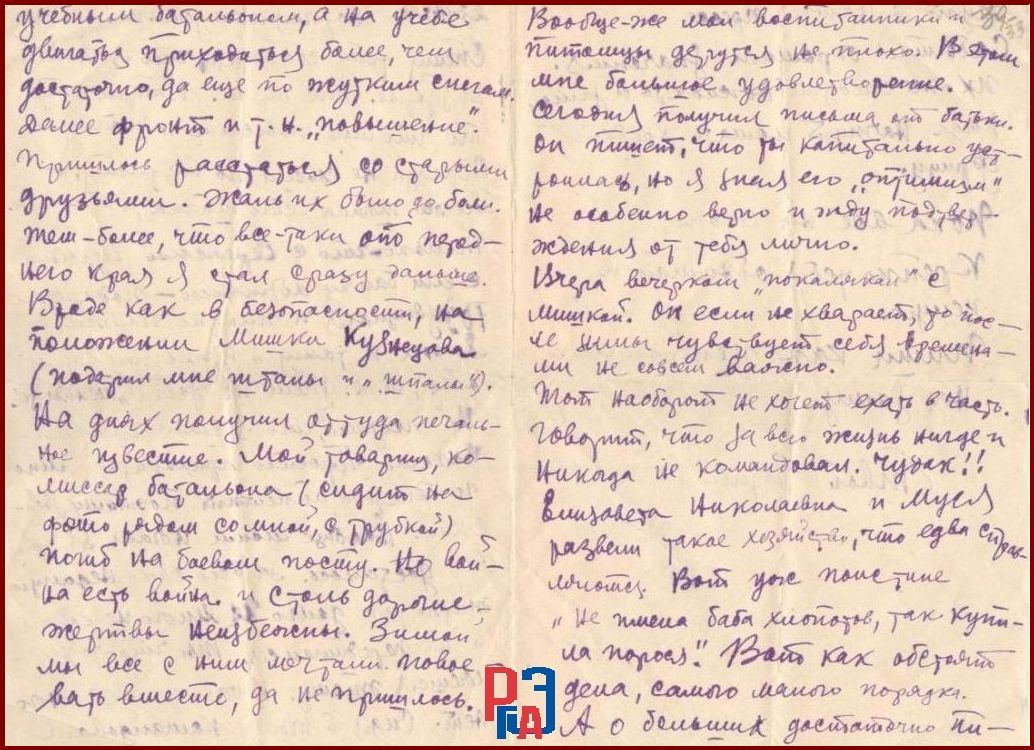 учебным батальоном, а на учебе
двигаться приходиться более, чем
достаточно, да еще по жутким снегам.
Далее фронт и т.н. „повышение".
Пришлось расстаться со старыми
друзьями. Жаль их было до боли.
тем-более, что все-таки от перед-
него края я стал сразу дальше.
Вроде как в безопасности, на
положении Мишки Кузнецова
(подарил мне штаны и „шпалы").
На днях получил оттуда печаль-
ное известие. Мой товарищ, ко-
миссар батальона (сидит на
фото рядом со мной, с трубкой)
погиб на боевом посту. Но вой-
на есть война и столь дорогие
жертвы неизбежны. Зимой
мы все с ним мечтали повое-
вать вместе, да не пришлось.
Вообще-же мои воспитанники и
питомцы дерутся не плохо. В этом
мне большое удовлетворение.
Сегодня получил письма от батьки.
Он пишет, что ты капитально уст-
роилась, но я зная его „оптимизм"
не особенно верю и жду подтвер-
ждения от тебя лично.
Вчера вечерком „покалякал" с
Мишкой. Он если не хворает, то пос-
ле зимы чувствует себя времена-
ми не совсем важно.
Тот наоборот не хочет ехать в часть.
Говорит, что за всю жизнь нигде и
никогда не командовал. Чудак!!
Елизавета Николаевна и Муся
развели такое хозяйство, что едва справ-
ляются. Вот уж поистине
„Не имела баба хлопотов, так купи-
ла порося". Вот как обстоят
дела, самого малого порядка.
А о больших достаточно пи-
РГАЭ